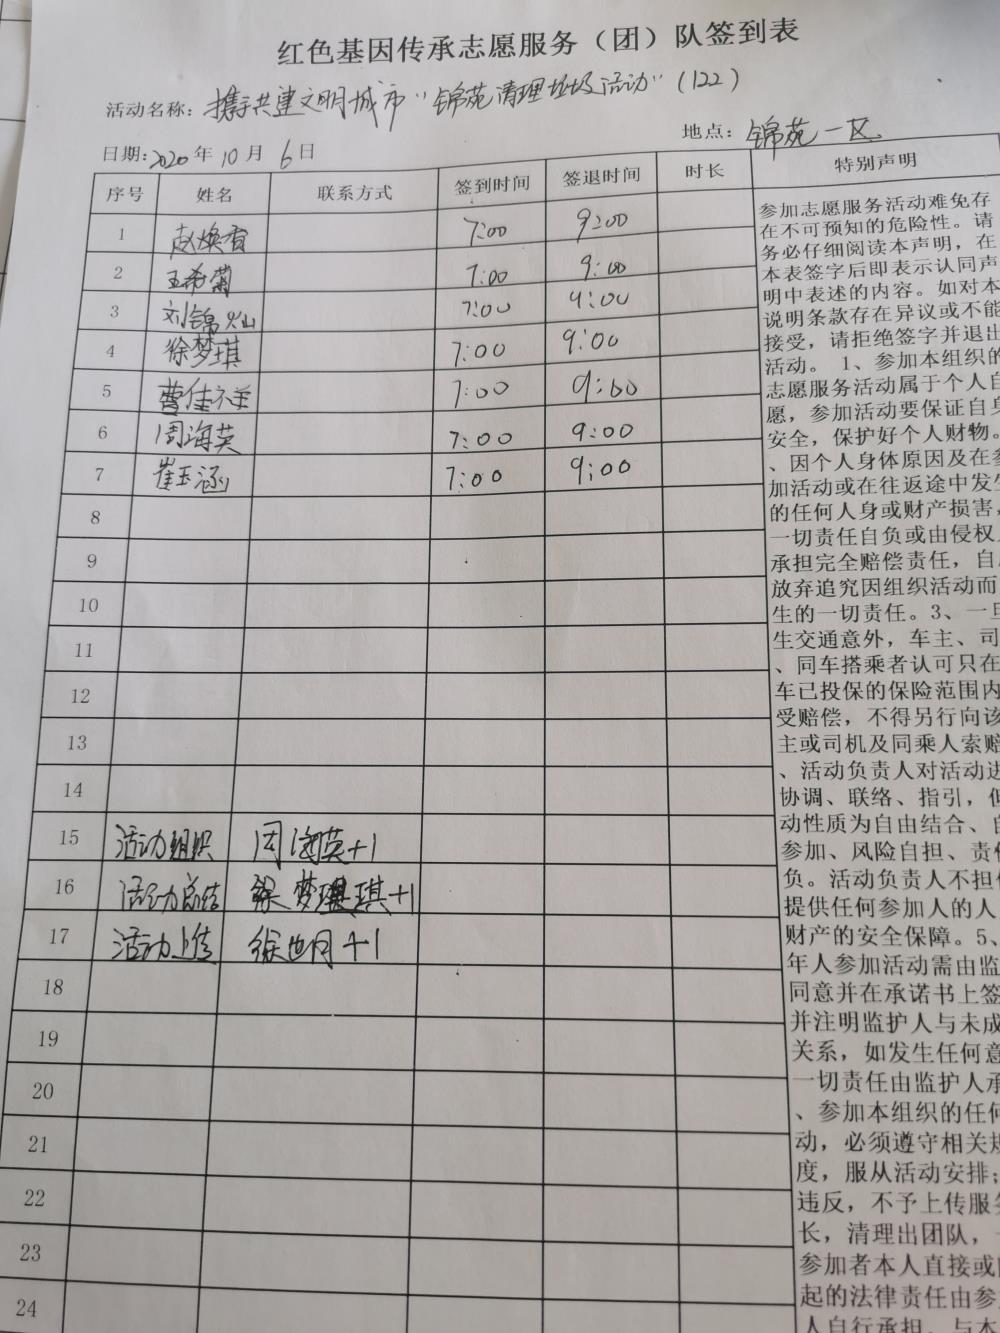 红色基因传承志愿服务（团）队签到表
活动名称：携手共建文明城市“锦苑清理垃圾活动”（122）
日期：2020年10月6日 地点：锦苑一区
序号 姓名 联系方式 签到时间 签退时间 时长 特别声明
1 赵焕香 7:00 9:00
2 王希菊 7:00 9:00
3 刘锦灿 7:00 9:00
4 徐梦琪 7:00 9:00
5 曹佳 7:00 9:00
6 周海英 7:00 9:00
7 崔玉涵 7:00 9:00
8
9
10
11
12
13
14
15 活动组织 周海英+1
16 活动总结 徐梦琪+1
17 活动上传 徐世同+1
18
19
20
21
22
23
24
参加志愿服务活动难免存
在不可预知的危险性。请
务必仔细阅读本声明，在
本表签字后即表示认同声
明中表述的内容。如对本
说明条款存在异议或不能
接受，请拒绝签字并退出
活动。 1、参加本组织的
志愿服务活动属于个人自
愿，参加活动要保证自身
安全，保护好个人财物。
、因个人身体原因及在参
加活动或在往返途中发生
的任何人身或财产损害，
一切责任自负或由侵权人
承担完全赔偿责任，自
放弃追究因组织活动而
生的一切责任。3、一旦
生交通意外，车主、司
、同车搭乘者认可只在
车已投保的保险范围内
受赔偿，不得另行向该
主或司机及同乘人索赔
、活动负责人对活动进
协调、联络、指引，但
动性质为自由结合、自
参加、风险自担、责任
负。活动负责人不担任
提供任何参加人的人
财产的安全保障。5、
年人参加活动需由监
同意并在承诺书上签
并注明监护人与未成
关系，如发生任何意
一切责任由监护人承
、参加本组织的任何
动，必须遵守相关规
度，服从活动安排；
违反，不予上传服务
长，清理出团队，
参加者本人直接或间
起的法律责任由参
人自行承担。与本